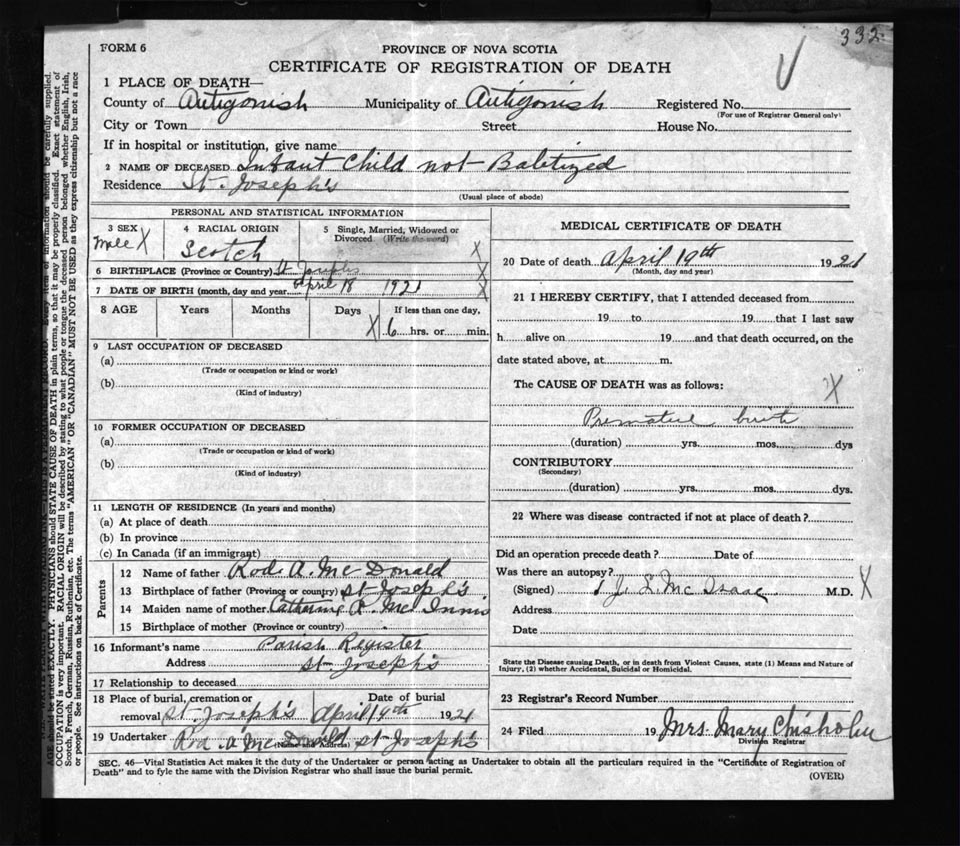 332
FORM 6
PROVINCE OF NOVA SCOTIA
CERTIFICATE OF REGISTRATION OF DEATH
1 PLACE OF DEATH—
County of Antigonish Municipality of Antigonish Registered No.
(For use of Registrar General only)
City or Town Street House No.
If in hospital or institution, give name
2 NAME OF DECEASED Infant Child not Babtized
Residence St. Joseph's
(Usual place of abode)
PERSONAL AND STATISTICAL INFORMATION
3 SEX 4 RACIAL ORIGIN 5 Single, Married, Widowed or
Divorced (Write the word)
Male X Scotch X
6 BIRTHPLACE (Province or Country) St Josephs X
7 DATE OF BIRTH (month, day and year) April 18 1921 X
8 AGE Years Months Days If less than one day,
X 6 hrs. or min.
9 LAST OCCUPATION OF DECEASED
(a)
(Trade or occupation or kind or work)
(b)
(Kind of industry)
10 FORMER OCCUPATION OF DECEASED
(a)
(Trade or occupation or kind of work)
(b)
(Kind of industry)
11 LENGTH OF RESIDENCE (In years and months)
(a) At place of death
(b) In province
(c) In Canada (if an immigrant)
Parents
12 Name of father Rod. A. Mc Donald
13 Birthplace of father (Province or country) St Joseph's
14 Maiden name of mother Catharine Mc Innis
15 Birthplace of mother (Province or country)
16 Informant's name Parish Register
Address St Joseph's
17 Relationship to deceased
18 Place of burial, cremation or Date of burial
removal St. Joseph's April 19th 1921
19 Undertaker Rod A Mc Donald St Joseph's
(Name and Address)
MEDICAL CERTIFICATE OF DEATH
20 Date of death April 19th 1921
(Month, day and year)
21 I HEREBY CERTIFY, that I attended deceased from
19 to 19 that I last saw
h alive on 19 and that death occurred, on the
date stated above, at m.
The CAUSE OF DEATH was as follows: X
Premature birth
(duration) yrs. mos. dys
CONTRIBUTORY
(Secondary)
(duration) yrs. mos. dys.
22 Where was disease contracted if not at place of death?
Did an operation precede death? Date of
Was there an autopsy?
(Signed) J. L. Mc Isaac M.D. X
Address
Date
State the Disease causing Death, or in death from Violent Causes, state (1) Means and Nature of
Injury, (2) whether Accidental, Suicidal or Homicidal.
23 Registrar's Record Number
24 Filed 19 Mrs. Mary Chisholm
Division Registrar
SEC. 46—Vital Statistics Act makes it the duty of the Undertaker or person acting as Undertaker to obtain all the particulars required in the "Certificate of Registration of
Death" and to fyle the same with the Division Registrar who shall issue the burial permit.
(OVER)
AGE should be stated EXACTLY. PHYSICIANS should STATE CAUSE OF DEATH in plain terms, so that it may be properly classified. Exact statement of
OCCUPATION is very important. RACIAL ORIGIN will be described by stating to what people or tongue the deceased person belonged whether English, Irish,
Scotch, French, German, Russian, Ruthenian, etc. The terms "AMERICAN" OR "CANADIAN" MUST NOT BE USED as they express citizenship but not a race
or people. See instructions on back of Certificate.